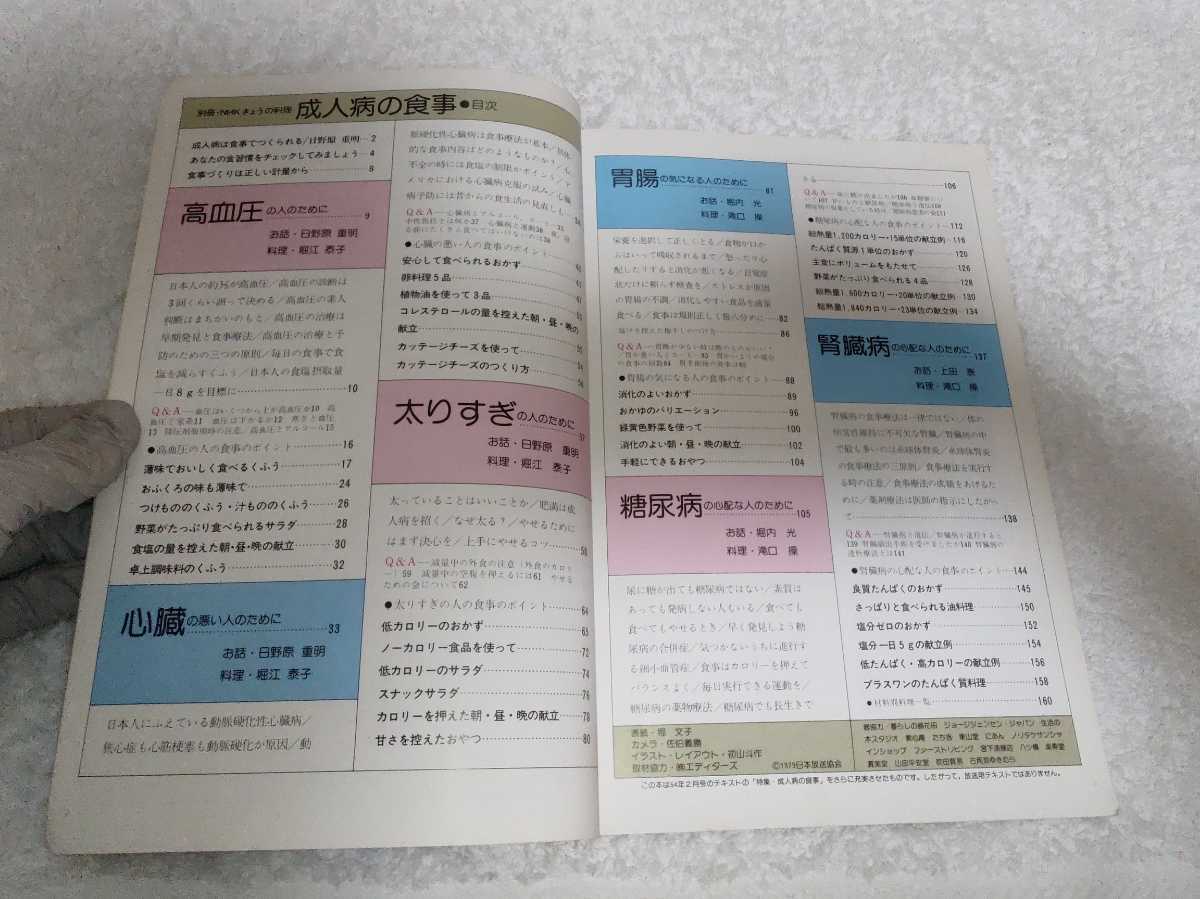 別冊・NHKきょうの料理 成人病の食事●目次
成人病は食事でつくられる/日野原 重明…2
あなたの食習慣をチェックしてみましょう…4
食事づくりは正しい計量から…………8
高血圧の人のために……9
お話・日野原 重明
料理・堀江 泰子
日本人の約⅓が高血圧/高血圧の診断は
3回くらい測って決める/高血圧の素人
判断はまちがいのもと/高血圧の治療は
早期発見と食事療法/高血圧の治療と予
防のための三つの原則/毎日の食事で食
塩を減らすくふう/日本人の食塩摂取量
一日8gを目標に……10
Q&A―血圧はいくつから上が高血圧か10 高
●高血圧の人の食事のポイント……16
薄味でおいしく食べるくふう……17
おふくろの味も薄味で……24
つけもののくふう・汁もののくふう……26
野菜がたっぷり食べられるサラダ……28
食塩の量を控えた朝・昼・晩の献立……30
卓上調味料のくふう……32
心臓の悪い人のために……33
お話・日野原 重明
料理・堀江 泰子
日本人にふえている動脈硬化性心臓病/
狭心症も心筋梗塞も動脈硬化が原因/動
脈硬化性心臓病は食事療法が基本/具体
的な食事内容はどのようなものか/心
不全の時には食塩の制限がポイント/ア
メリカにおける心臓病克服の試み/心臓
病予防には昔からの食生活の見直しも…34
●心臓の悪い人の食事のポイント……
安心して食べられるおかず……
卵料理5品……
植物油を使って3品……
コレステロールの量を控えた朝・昼・晩の
献立……
カッテージチーズを使って……
カッテージチーズのつくり方……56
太りすぎの人のために……57
お話・日野原 重明
料理・堀江 泰子
太っていることはいいことか/肥満は成
人病を招く/なぜ太る?/やせるために
はまず決心を/上手にやせるコツ……58
Q&A―減量中の外食の注意(外食のカロリ
ー)59 減量中の空腹を押えるには61 やせる
ための金について62
●太りすぎの人の食事のポイント……64
低カロリーのおかず……65
ノーカロリー食品を使って……72
低カロリーのサラダ……74
スナックサラダ……76
カロリーを押えた朝・昼・晩の献立……78
甘さを控えたおやつ……80
胃腸の気になる人のために……81
お話・堀内 光
料理・滝口 操
栄養を選択して正しくとる/食物が口か
ら はいって吸収されるまで/怒ったり心
配したりすると消化が悪くなる/自覚症
状だけに頼らず検査を/ストレスが原因
の胃腸の不調/消化しやすい食品を適量
食べる/食事は規則正しく腹八分めに…82
86
●胃腸の気になる人の食事のポイント……88
消化のよいおかず……89
おかゆのバリエーション……96
緑黄色野菜を使って……100
消化のよい朝・昼・晩の献立……102
手軽にできるおやつ……104
糖尿病の心配な人のために……105
お話・堀内 光
料理・滝口 操
尿に糖が出ても糖尿病ではない/素質は
あっても発病しない人もいる/食べても
食べてもやせるとき/早く発見しよう糖
尿病の合併症/気づかないうちに進行す
る細小血管症/食事はカロリーを押えて
バランスよく/毎日実行できる運動を/
糖尿病の薬物療法/糖尿病でも長生きで
きる……106
●糖尿病の心配な人の食事のポイント……112
総熱量1,200カロリー・15単位の献立例…116
たんぱく質源1単位のおかず……120
主食にボリュームをもたせて……126
野菜がたっぷり食べられる4品……128
総熱量1,600カロリー・20単位の献立例…130
総熱量1,840カロリー・23単位の献立例…134
腎臓病の心配な人のために……137
お話・上田 泰
料理・滝口 操
腎臓病の食事療法は一律ではない/体の
恒常性維持に不可欠な腎臓/腎臓病の中
で最も多いのは糸球体腎炎/糸球体腎炎
の食事療法の三原則/食事療法を実行す
る時の注意/食事療法の成績をあげるた
めに/薬剤療法は医師の指示にしたがっ
て……138
●腎臓病の心配な人の食事のポイント……144
良質たんぱくのおかず……145
さっぱりと食べられる油料理……150
塩分ゼロのおかず……152
塩分一日5gの献立例……154
低たんぱく・高カロリーの献立例……156
プラスワンのたんぱく質料理……158
●材料別料理一覧……160
表紙・堀 文子
カメラ・佐伯義勝
イラスト・レイアウト・初山斗作
取材協力・㈱エディターズ
©1979日本放送協会
この本は54年2月号のテキストの「特集・成人病の食事」をさらに充実させたものです。したがって、放送用テキストではありません。